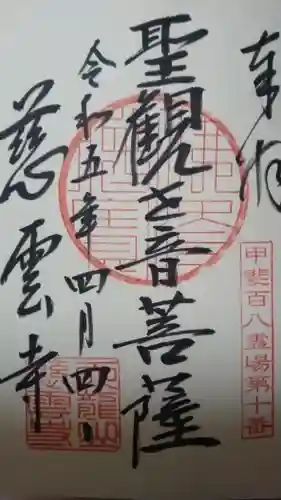 奉拝
甲斐百八霊場第十番
聖観世音菩薩
令和五年四月四日
慈雲寺